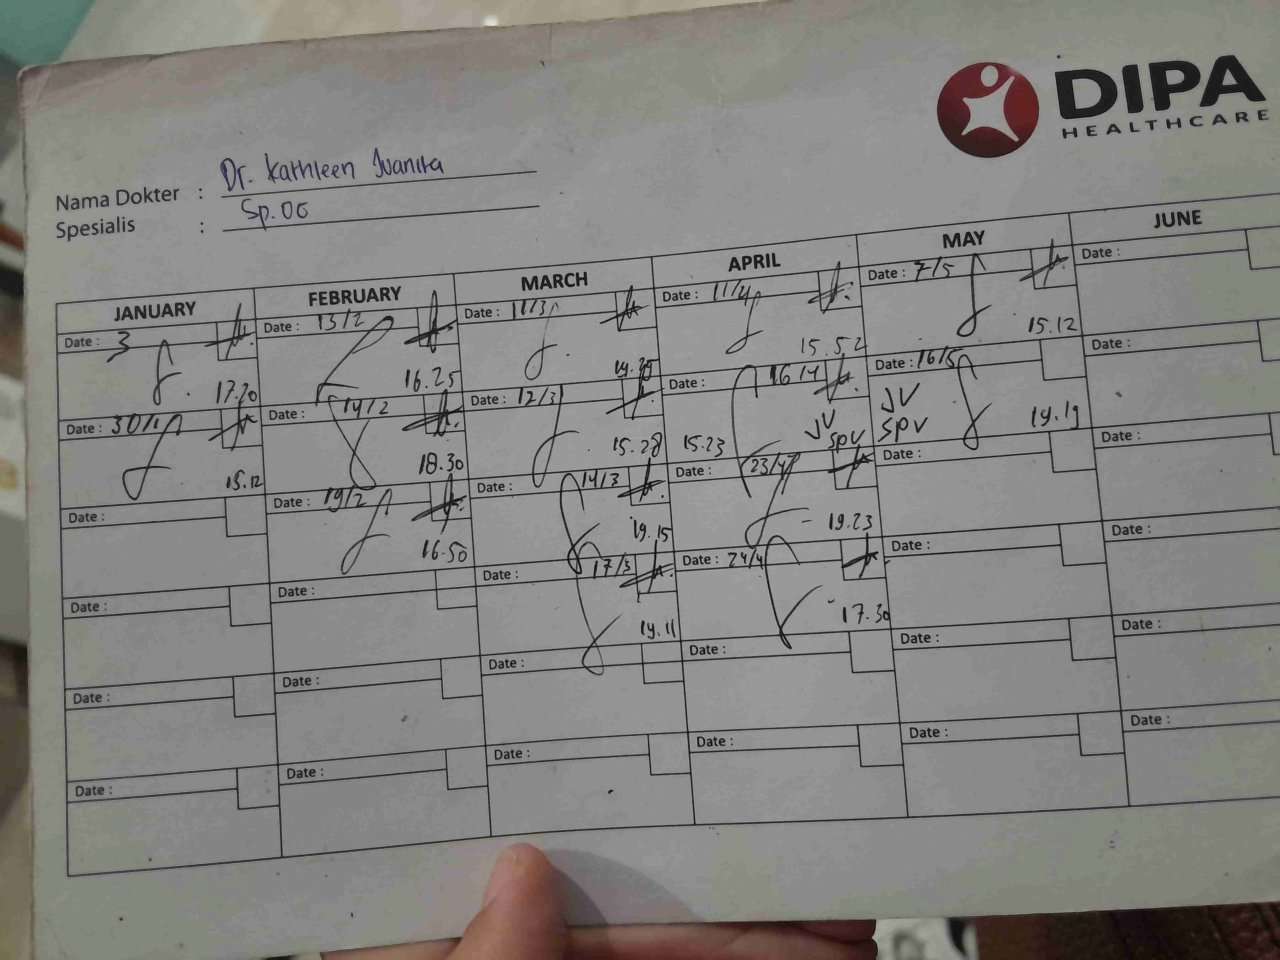 DIPA
HEALTHCARE
Nama Dokter : Dr. Kathleen Juanita
Spesialis : Sp.OG
JANUARY FEBRUARY MARCH APRIL MAY JUNE
Date : 3 Date : 13/2 Date : 11/3 Date : 11/4 Date : 7/5 Date :
17.20 16.25 19.25 15.52 15.12
Date : 30/1 Date : 14/2 Date : 12/3 Date : 16/4 Date : 16/5 Date :
15.12 18.30 15.28 15.23 JV SPV JV SPV 19.19
Date : Date : 19/2 Date : 14/3 Date : 23/4 Date : Date :
16.50 19.15 19.23
Date : Date : Date : 17/3 Date : 24/4 Date : Date :
19.11 17.30
Date : Date : Date : Date : Date : Date :
Date : Date : Date : Date : Date : Date :